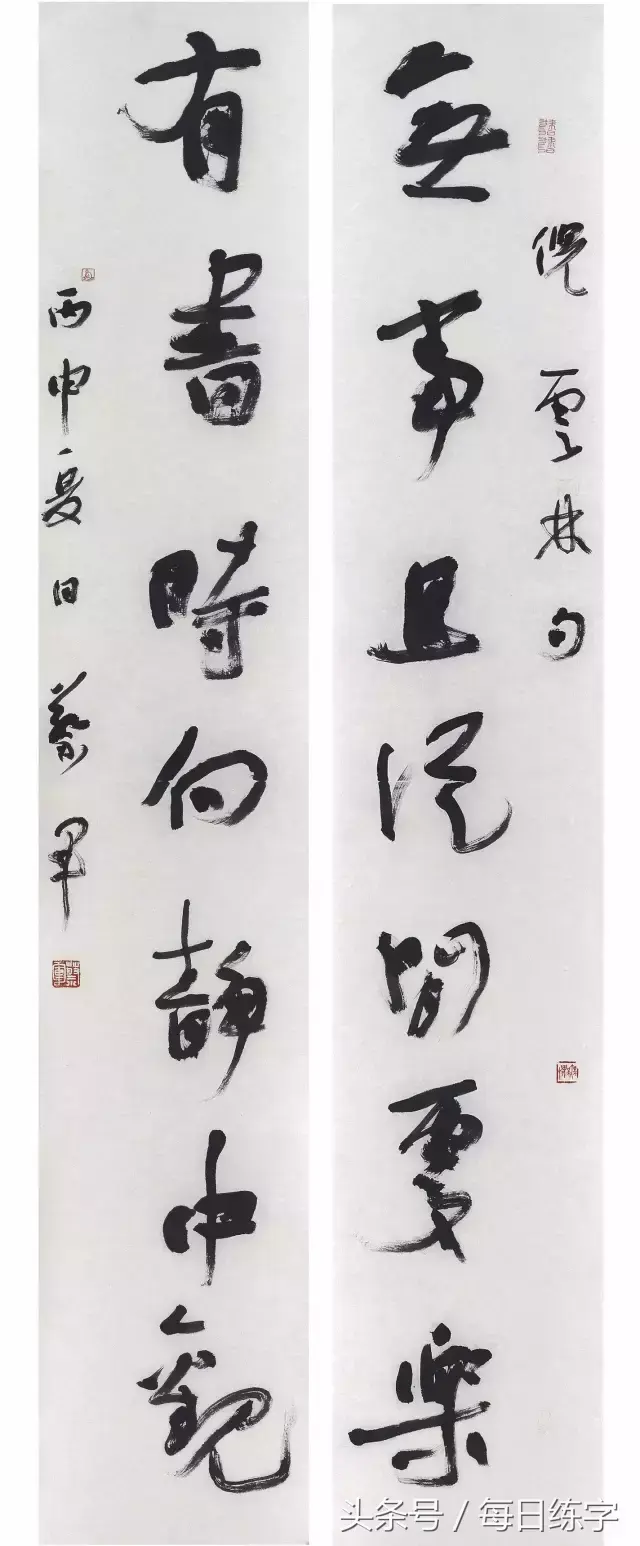 倪雲林句
無事且從閒處樂
有書時向靜中觀
丙申夏日蔡
头条号 / 每日练字